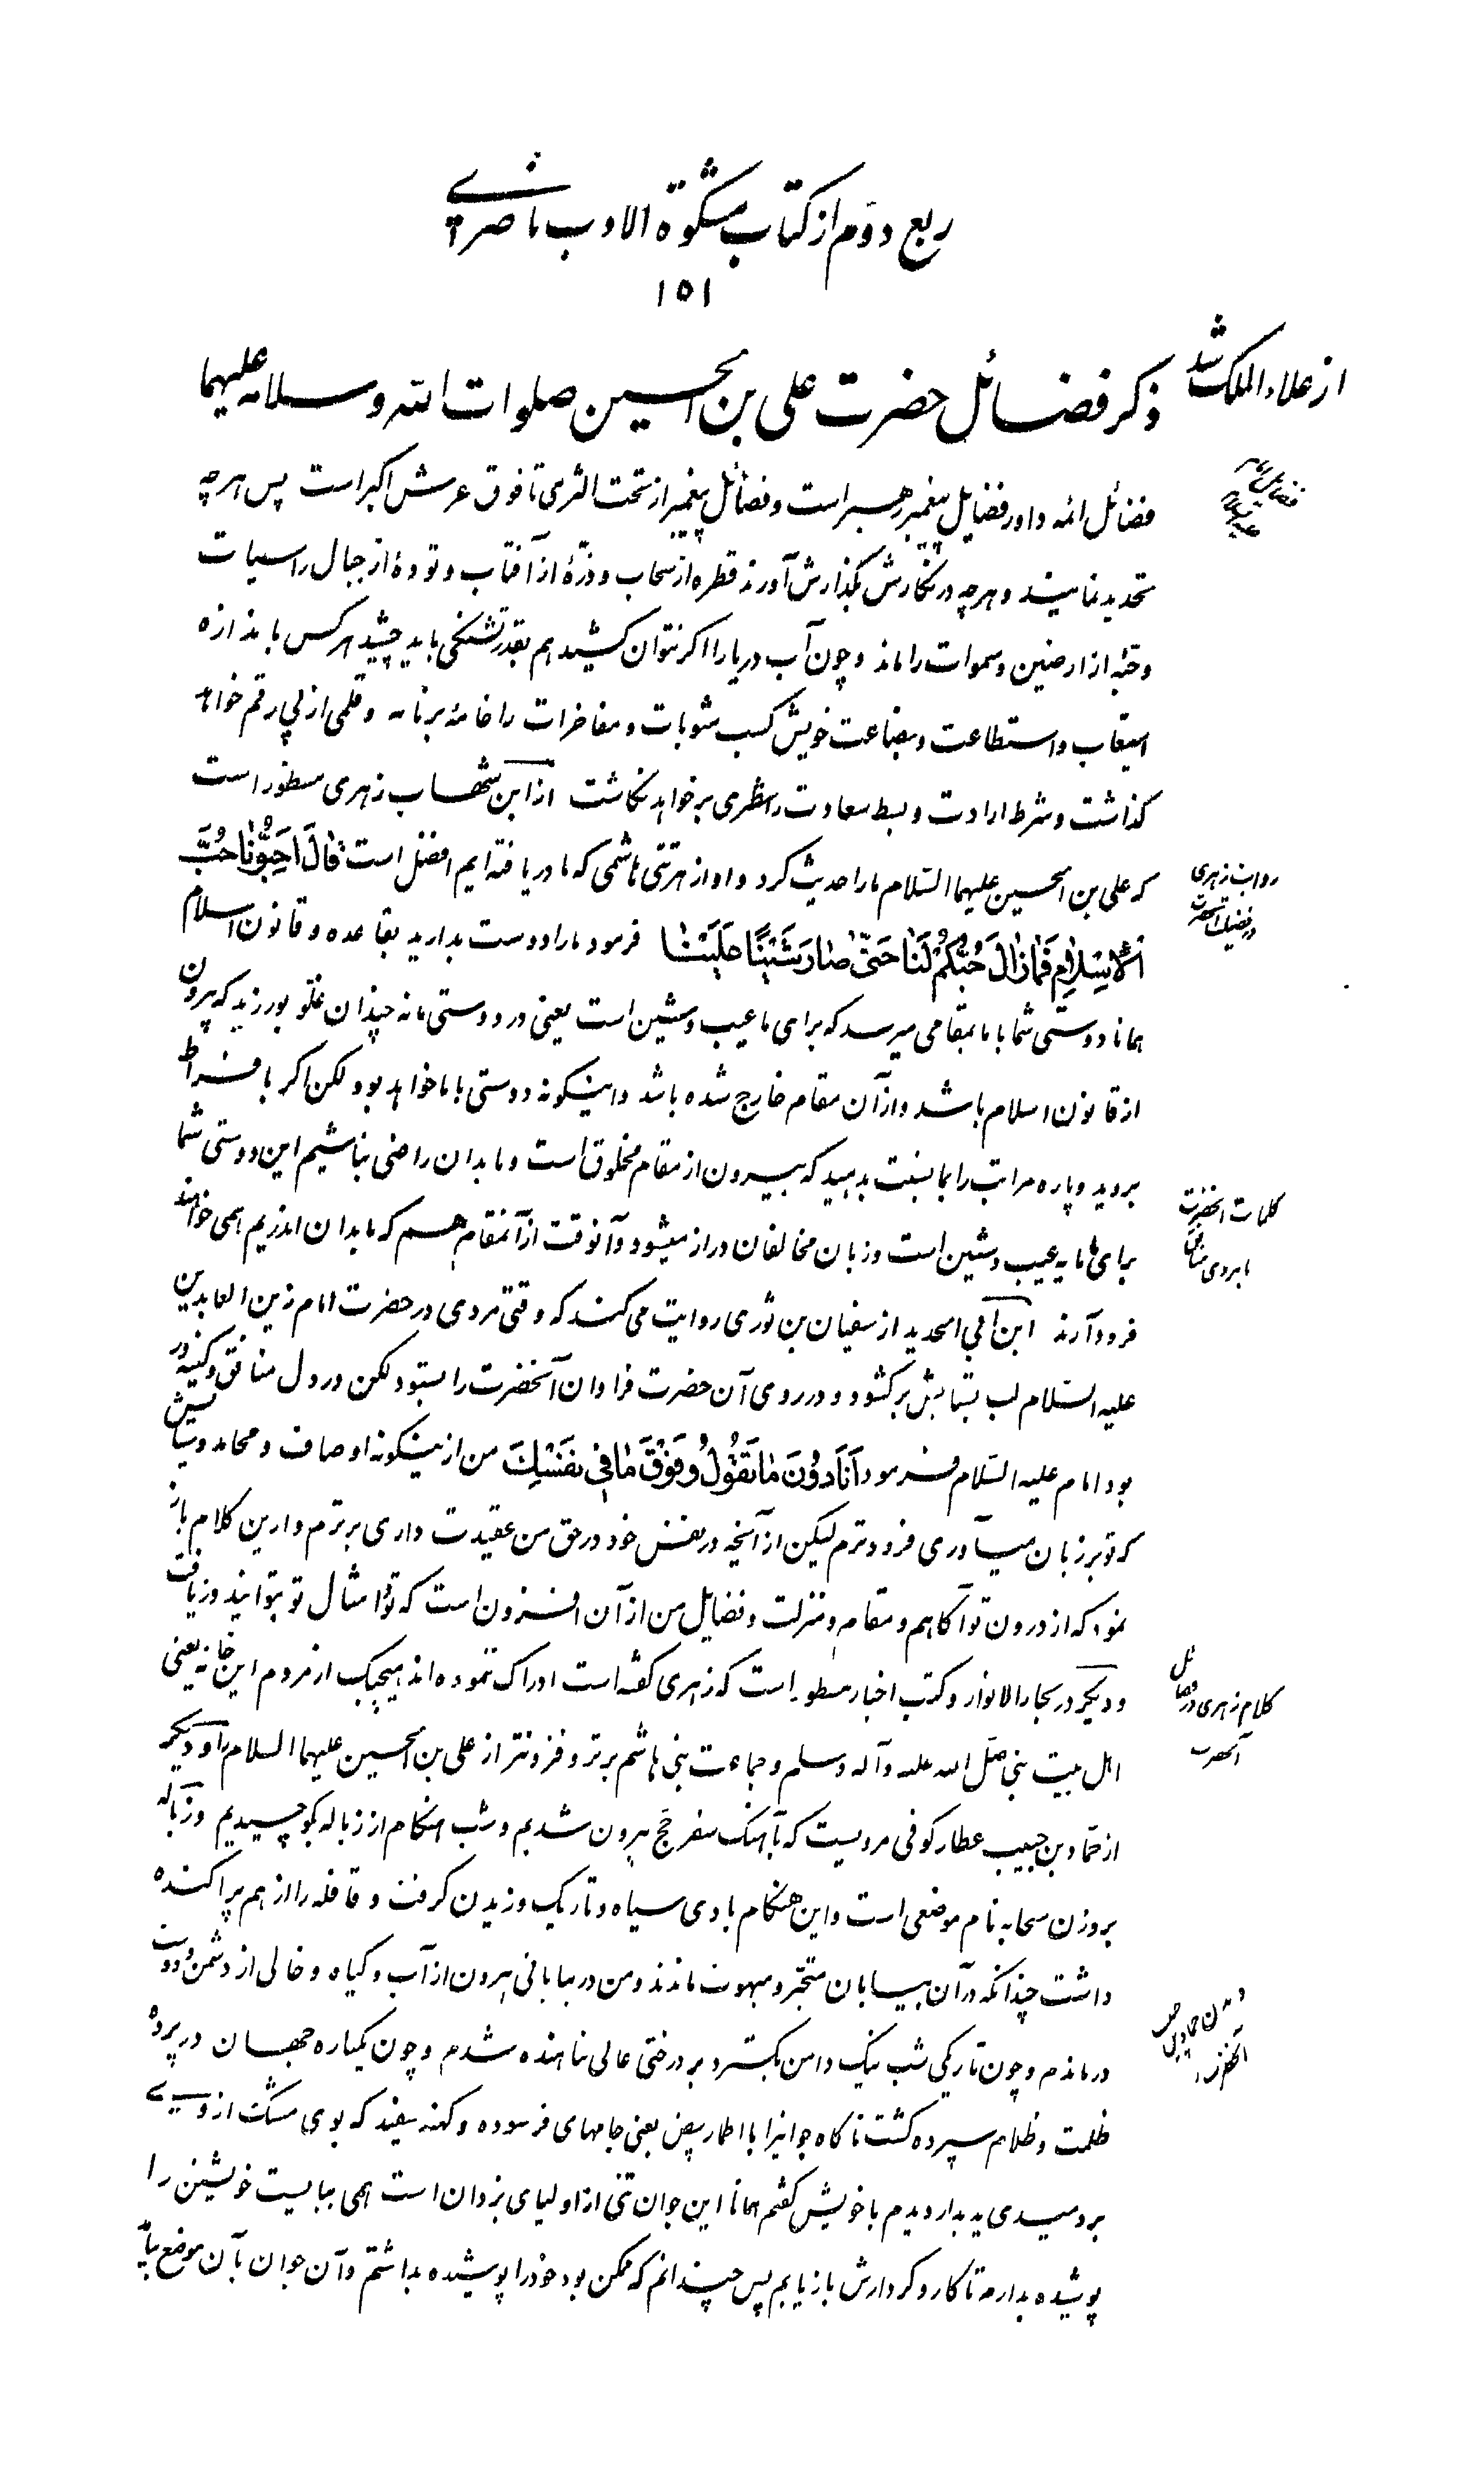 ربع دوّم از کتاب مشکوة الادب ناصری
۱۵۱
از علاء الملک شد
ذکر فضائل حضرت علی بن الحسین صلوات الله و سلامه علیهما
فضائل ائمه داور فضایل پیغمبر رهبر است و فضائل پیغمبر از تحت الثری تا فوق عرش اکبر است پس هرچه
تحدید نمایند و هرچه در نگارش بگذارش آورند قطره از سحاب و ذرّهٔ از آفتاب و تودهٔ از جبال راسیات
وحبّه از ارضین و سموات را ماند و چون آب دریا را اگر نتوان کشید هم بقدر تشنگی باید چشید هرکس باندازه
استعاب و استطاعت و بضاعت خویش کسب مثوبات و مفاخرات را خامهٔ برنامه و قلمی از پی رقم خواهد
گذاشت و شرط ارادت و بسط سعادت را سطری بر خواهد نگاشت از ابن شهاب زهری مسطور است
که علی بن الحسین علیهما السّلام ما را حدیث کرد و او از هرتنی هاشمی که ما دریافته ایم افضل است قالَ اَحِبُّونا حُبَّ
روایت زهری
در فضیلت آنحضرت
الْاِسْلامِ فَمازالَ حُبُّکُمْ لَنا حَتّی صارَ شَیْنًا عَلَیْنا فرمود ما را دوست بدارید بقاعده و قانون اسلام
همانا دوستی شما با ما بمقامی میرسد که برای ما عیب و شین است یعنی در دوستی ما نه چندان غلو بورزید که بیرون
از قانون اسلام باشد و از آن مقام خارج شده باشد و اینگونه دوستی با ما خواهد بود لکن اگر بافراط
بروید و پاره مراتب را بما نسبت بدهید که بیرون از مقام مخلوق است و ما بدان راضی نباشیم این دوستی شما
کلمات آنحضرت
با مردی منافق
برای ما مایه عیب و شین است و زبان مخالفان دراز میشود و آنوقت از آنمقام هم که ما بدان اندریم همی خواهند
فرود آرند ابن ابی الحدید از سفیان بن ثوری روایت می کند که وقتی مردی در حضرت امام زین العابدین
علیه السّلام لب بستایش برگشود و در روی آن حضرت فراوان آنحضرت را بستود لکن در دل منافق و کینه ور
بود امام علیه السّلام فرمود اَنَا دوُنَ ما تَقُولُ وَ فَوْقَ ما فی نَفْسِكَ من از اینگونه اوصاف و محامد و ستایش
که تو بر زبان میآوری فرودترم لیکن از آنچه در نفس خود در حق من عقیدت داری برترم و ازین کلام باز
نمود که از درون تو آگاهم و مقام و منزلت و فضایل من از آن افزون است که تو و امثال تو بتوانید دریافت
و دیگر در بحار الانوار و کتب اخبار مسطور است که زهری گفته است ادراک ننموده اند هیچیک از مردم این خانه یعنی
کلام زهری در فضائل
آنحضرت
اهل بیت نبی صلّی الله علیه و آله وسلم و جماعت بنی هاشم برتر و فزونتر از علی بن الحسین علیهما السلام را و دیگر
از حمّاد بن حبیب عطار کوفی مرویست که بآهنگ سفر حجّ بیرون شدیم و شب هنگام از زباله بکوچیدیم و زباله
بروزن سحابه نام موضعی است و این هنگام بادی سیاه و تاریک وزیدن گرفت و قافله را از هم پراکنده
داشت چندانکه در آن بیابان متحیّر و مبهوت ماندند و من در بیابانی بیرون از آب و گیاه و خالی از دشمن و دوست
درماندم و چون تاریکی شب نیک دامن بگسترد بر درختی عالی پناهنده شدم و چون یکباره جهان در پرده
ظلمت و ظلام سپرده گشت ناگاه جوانیرا با اطمار بیض یعنی جامهای فرسوده و کهنه سفید که بوی مشک از وی
بر دمیدی پدیدار دیدم با خویش گفتم همانا این جوان تنی از اولیای یزدان است همی ببایست خویشتن را
پوشیده بدارم تا کار و کردارش بازیابم پس چندانم که ممکن بود خود را پوشیده بداشتم و آن جوان بآن موضع بیامد